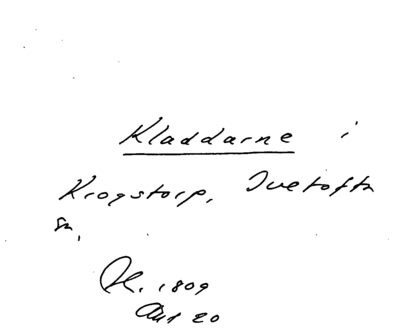 Kladdarne i
Krogstorp, Ivetofta
sn,
1809
20